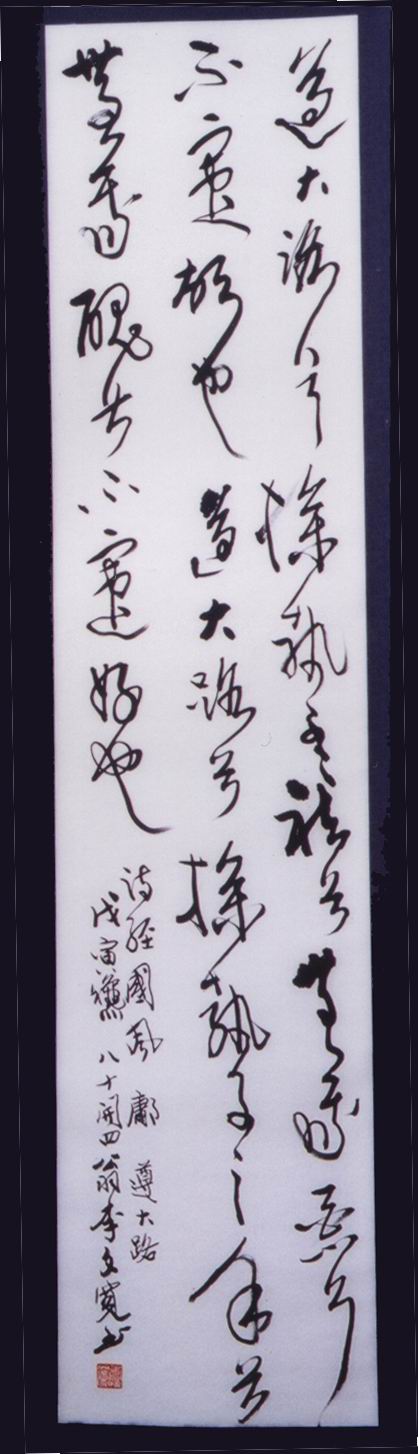 遵大路兮摻執子之袪兮無我惡兮
不寁故也遵大路兮摻執子之手兮
無我醜兮不寁好也
詩經國風 鄘 遵大路
戊寅龝 八十開四翁李文寬書